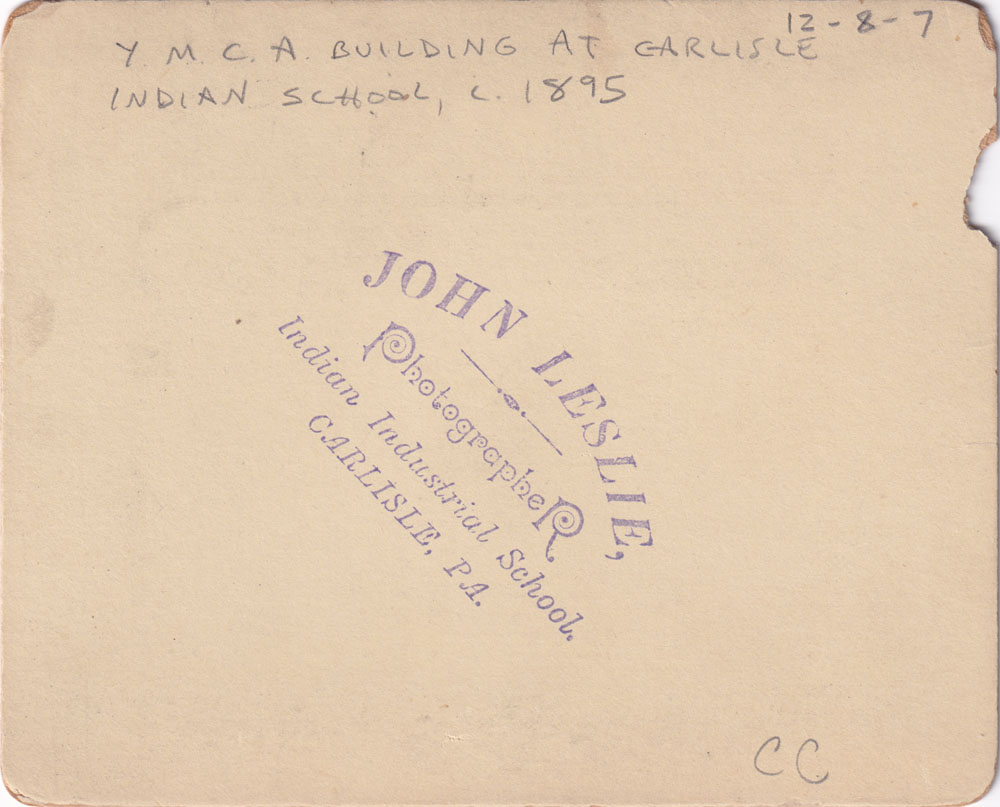 12-8-7
Y. M. C. A. BUILDING AT CARLISLE
INDIAN SCHOOL, C. 1895
JOHN LESLIE,
PhotographeR
Indian Industrial School.
CARLISLE, PA.
CC